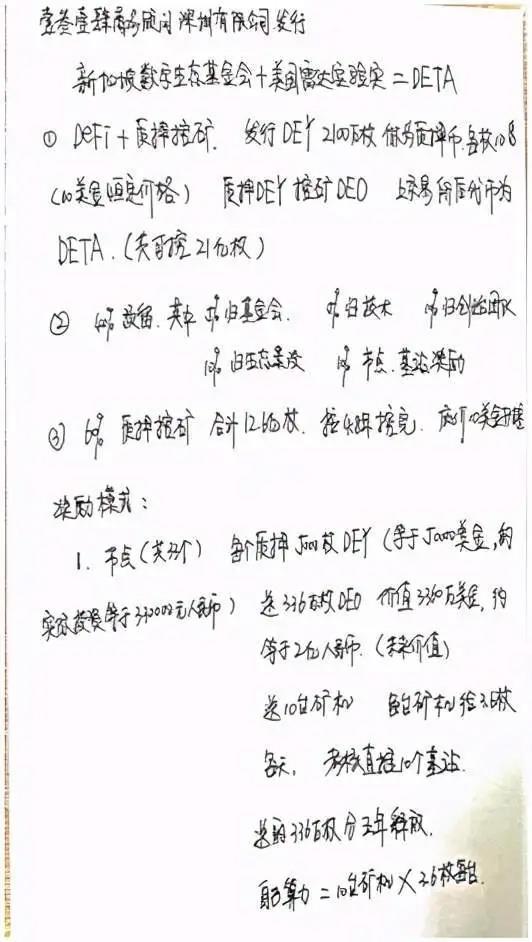 壹叁壹肆商务顾问深圳有限公司发行
新加坡数字生态基金会+美国雷达实验室=DETA
① DeFi+质押挖矿. 发行DEY 2100万枚 做为质押币.每枚10$
(10美金恒定价格) 质押DEY挖矿DEO 上交易所后分币为
DETA.(共可挖21亿枚)
② 40%预留.其中 5%归基金会. 5%归技术 10%归创始团队
10%归生态建设 10% 节点.基站奖励
③ 60% 质押挖矿 合计12.6亿枚. 挖48年挖完. 10美金开挖
奖励模式:
1. 节点(共33个) 每个质押5000枚DEY(等于50000美金,约
实际投资等于330000元人民币) 送336万枚DEO 价值3360万美金,约
等于2亿人民币.(未来价值)
送10台矿机 每台矿机给26枚
每天, 考核直推10个基站.
送的336万枚分三年释放.
自己算力=10台矿机×26枚每台.